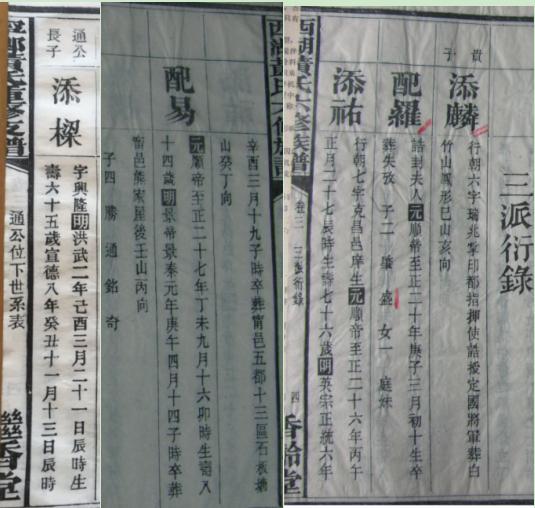 三派衍錄
貴子
添麟
行朝六字瑞兆掌印都指押使誥授定國將軍葬白
竹山鳳形巳山亥向
配羅
誥封夫人元順帝至正二十年庚子三月初十生卒
葬失攷 子二 肇 盛 女一 庭妹
添祐
行朝七字克昌邑庠生元順帝至正二十六年丙午
正月二十七辰時生壽七十六歲明英宗正統六年
西湖黃氏六修族譜 卷三 三派衍錄 四
辛酉三月十九子時卒葬甯邑五都十三區石板塘
山癸丁向
配易
元順帝至正二十七年丁未九月十六卯時生壽八
十四歲明景帝景泰元年庚午四月十四子時卒葬
甯邑熊家屋後壬山丙向
子四 勝 通 銘 奇
通公長子
添樑
字興隆明洪武二年己酉三月二十一日辰時生
壽六十五歲宣德八年癸丑十一月十三日辰時
通公位下世系表